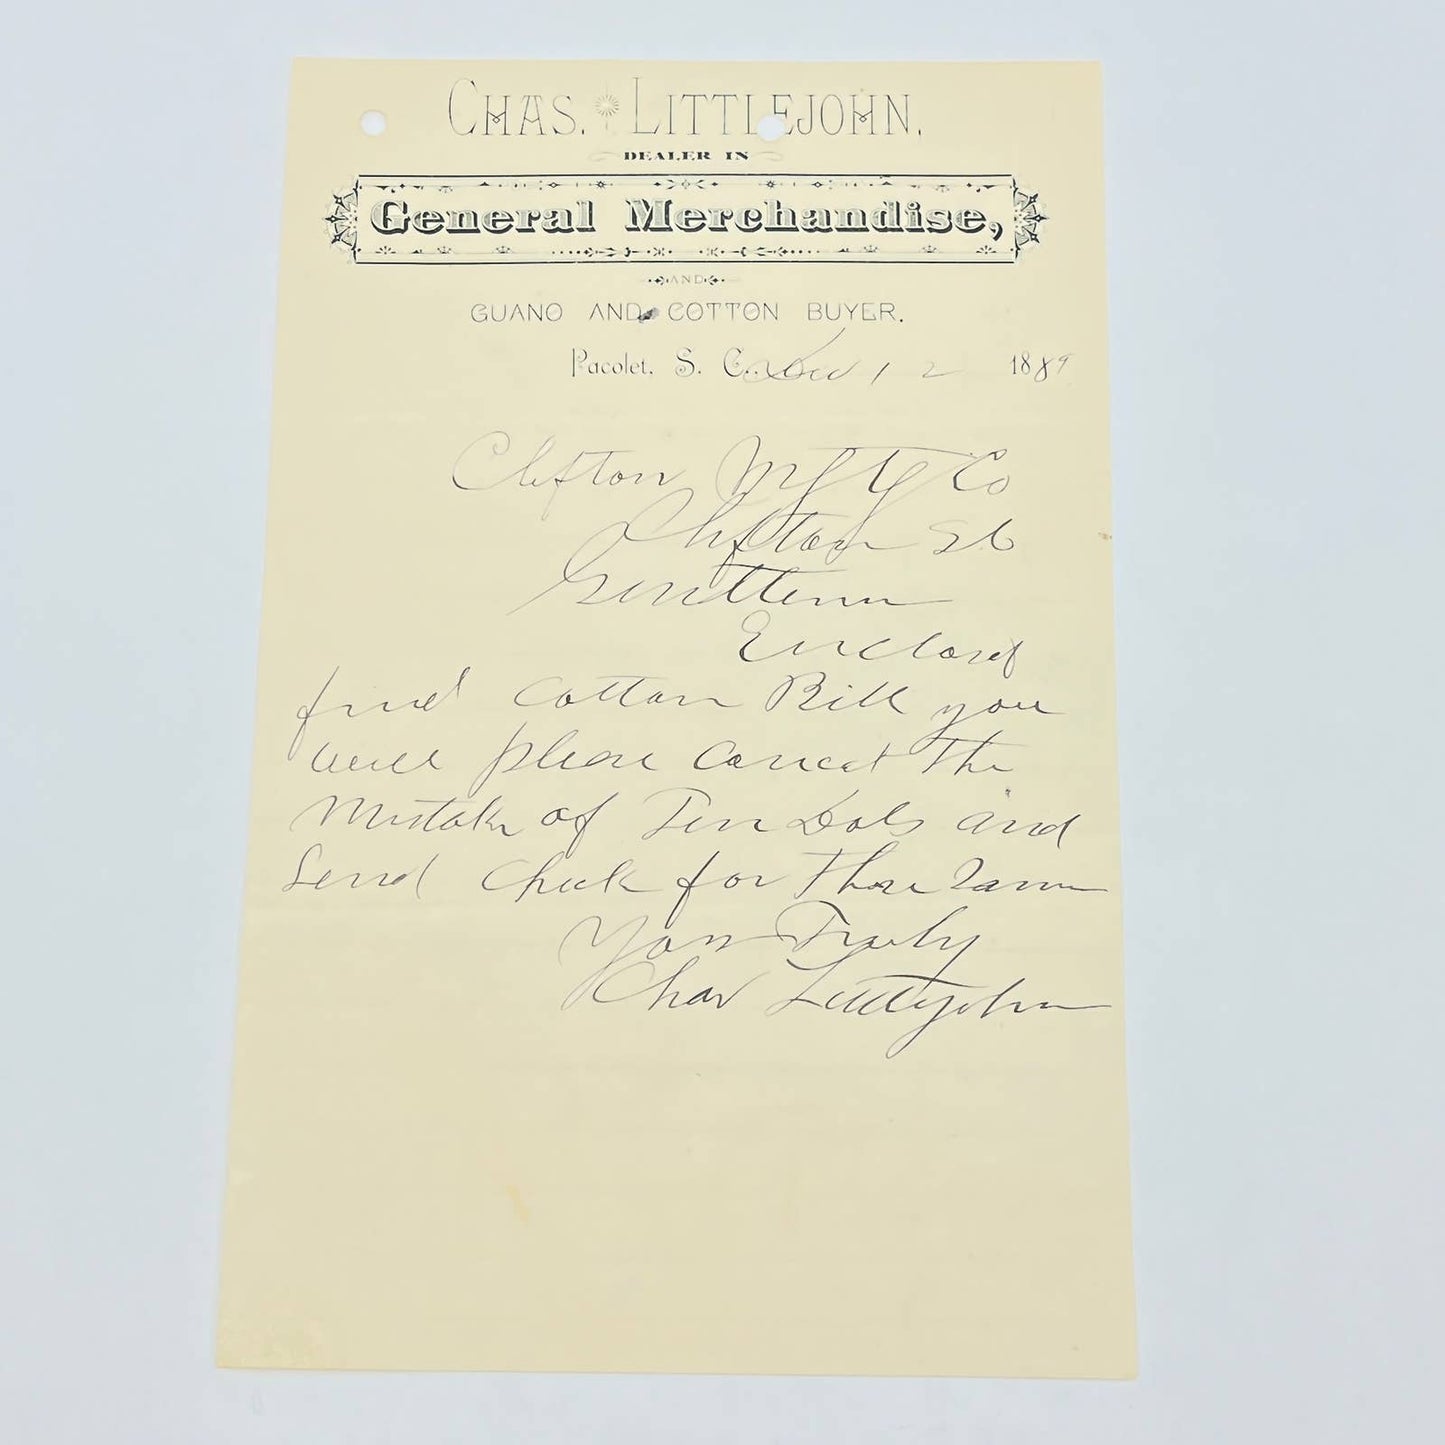 CHAS. LITTLEJOHN.
DEALER IN
General Merchandise,
AND
GUANO AND COTTON BUYER.
Pacolet, S. C., Dec 12 1889
Clifton Mfg Co
Clifton SC
Gentlemen
Enclosed
find Cotton Bill you
will please correct the
Mistake of Ten Dols and
Send Check for the same
Yours Truly
Chas Littlejohn